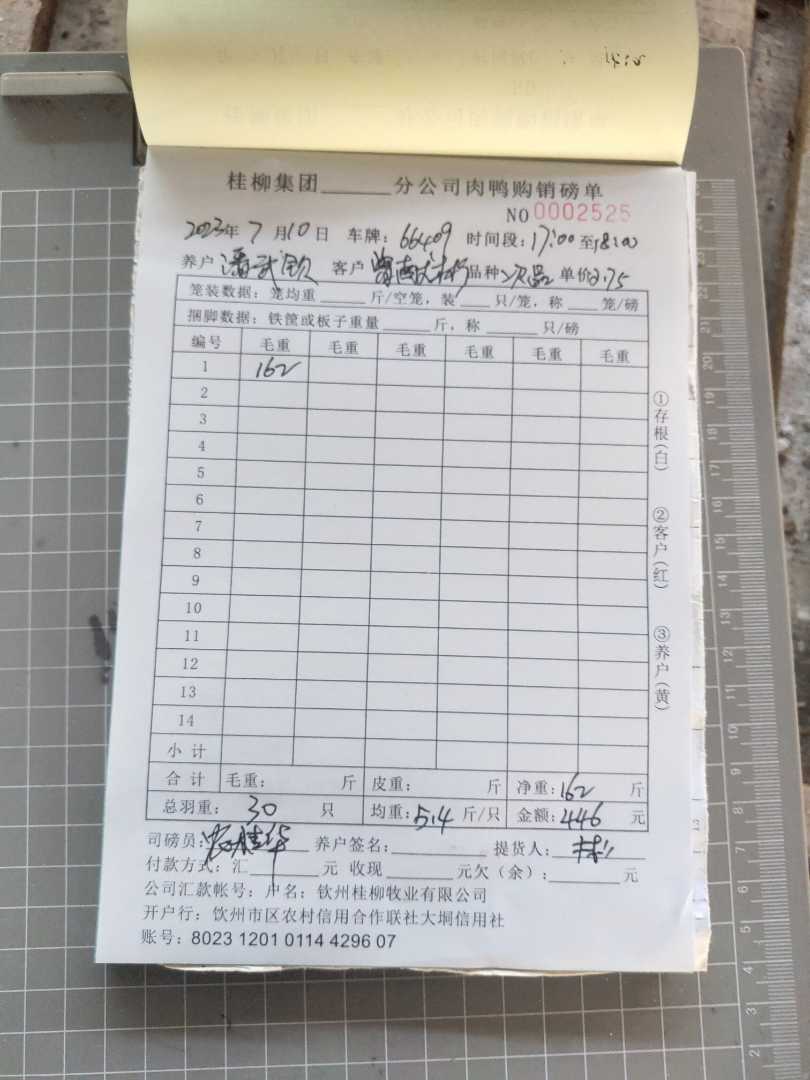 桂柳集团______分公司肉鸭购销磅单
NO 0002525
2023年 7 月10日 车牌：66409 时间段：17:00 至18:00
养户 潘武钦 客户 品种 次品 单价2.75
笼装数据：笼均重____斤/空笼，装___只/笼，称___笼/磅
捆脚数据：铁筐或板子重量_____斤，称_____只/磅
编号 毛重 毛重 毛重 毛重 毛重 毛重
1 162
2
3
4
5
6
7
8
9
10
11
12
13
14
小 计
合 计 毛重： 斤 皮重： 斤 净重：162 斤
总羽重： 30 只 均重：5.4 斤/只 金额：446 元
司磅员： 养户签名：________ 提货人：
付款方式：汇______元 收现______元欠（余）：______元
公司汇款帐号：户名：钦州桂柳牧业有限公司
开户行：钦州市区农村信用合作联社大垌信用社
账号：8023 1201 0114 4296 07
①存根（白）
②客户（红）
③养户（黄）